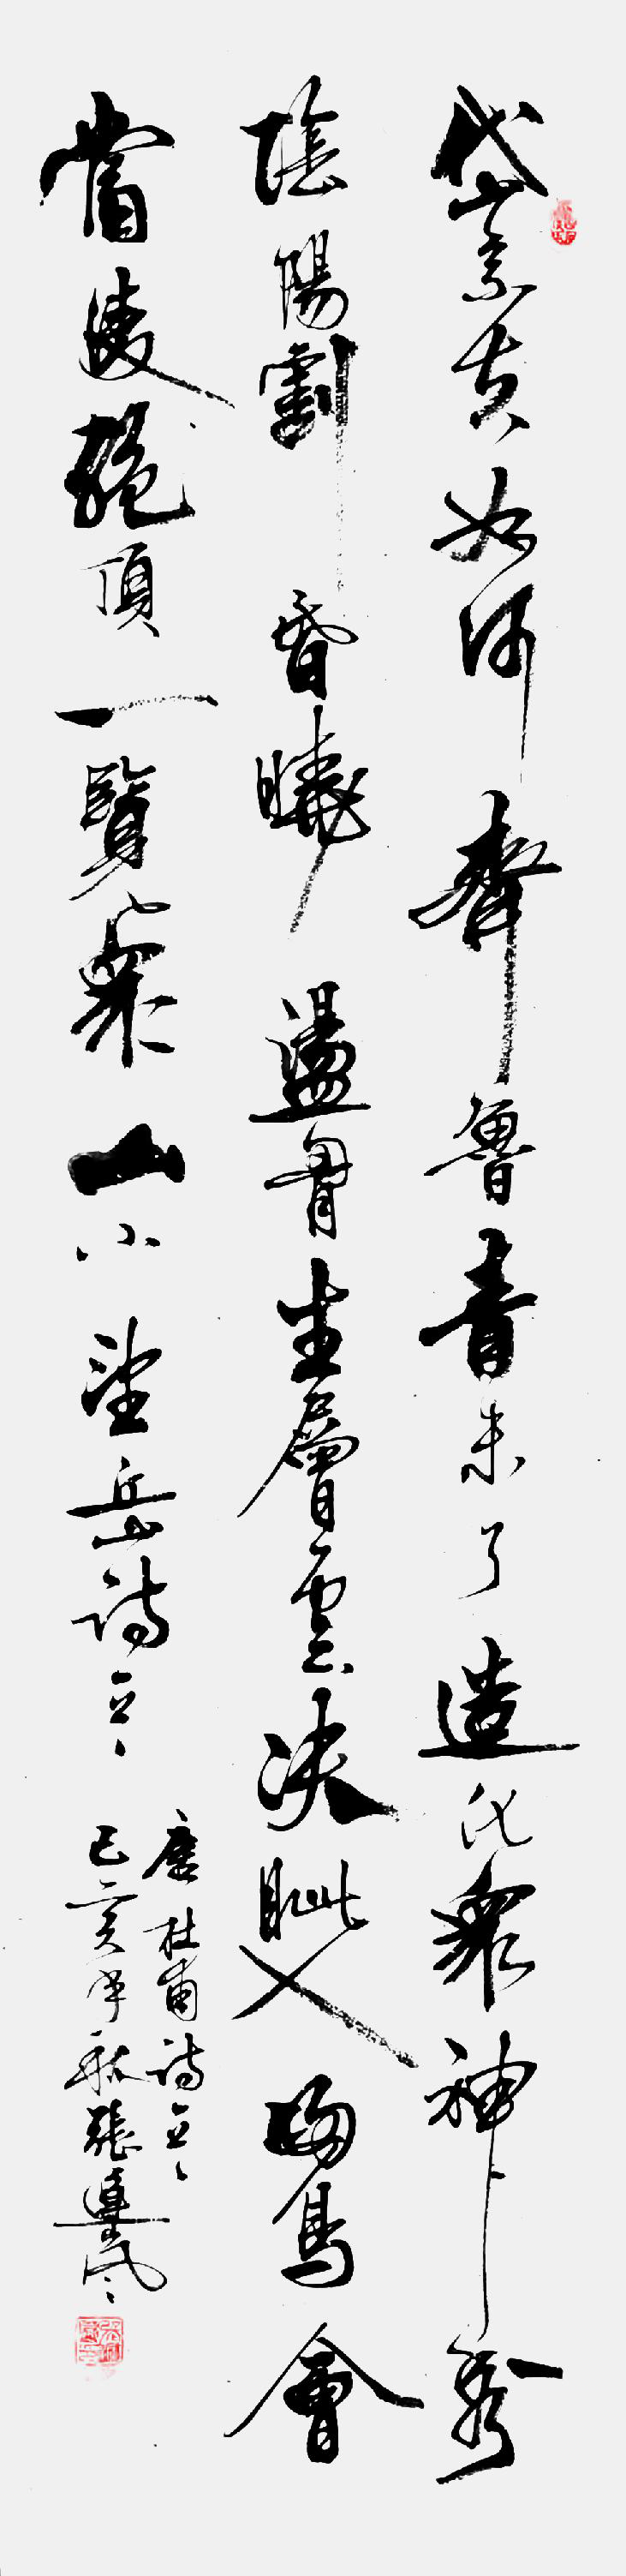 岱宗夫如何齊魯青未了造化衆神秀
陰陽割昏曉盪胷生層雲決眦入歸鳥會
當凌絕頂一覽衆山小望岳詩
唐杜甫詩
己亥年秋張